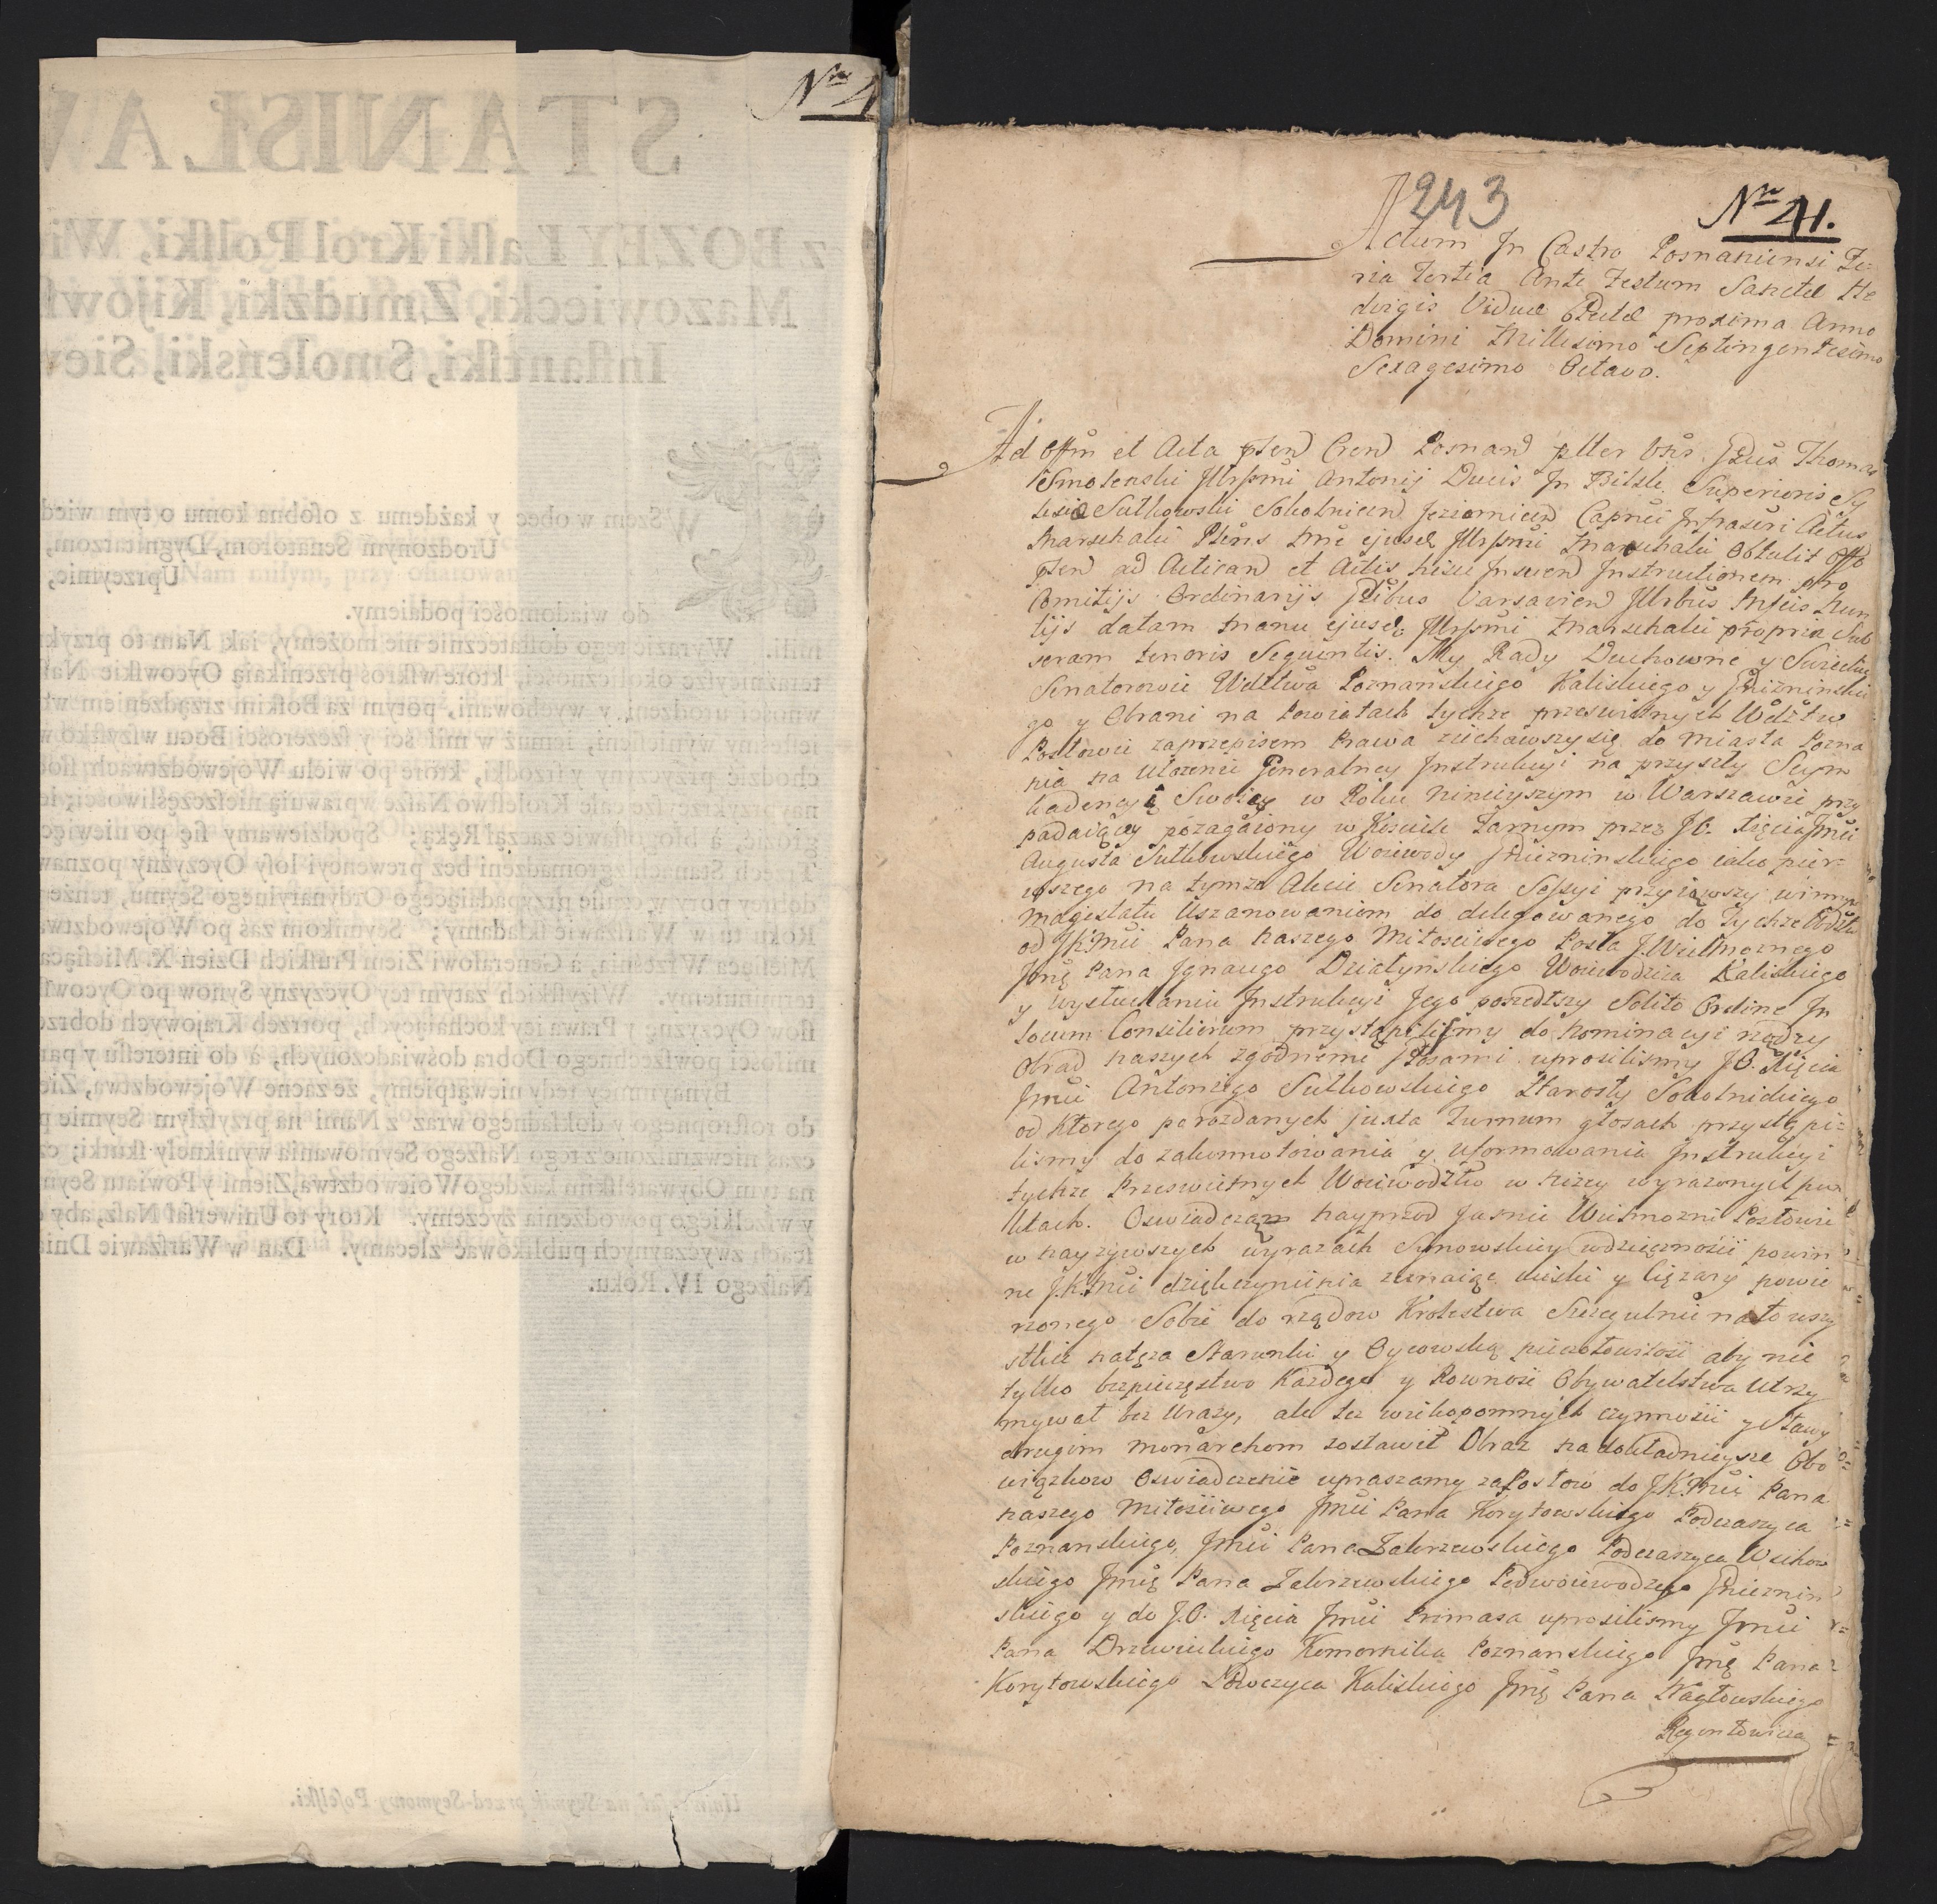 Nro 4
STANISŁAW
z BOZEY Łaſki Krol Polſki, Wi
Mazowiecki, Zmudzki, Kijowſ
Inflantſki, Smoleńſki, Siew
WSzem w obec y każdemu z oſobna komu o tym wied
Urodzonym Senatorom, Dygnitarzom,
Uprzeyinie,
do wiadomości podaiemy.
mili. Wyrazić tego doſtatecznie nie możemy, iak Nam to przyk
teraźnieyſze okoliczności, ktore wſkroś przenikaią Oycowſkie Naſ
wności urodzeni, y wychowani, potym za Boſkim zrządzeniem wt
ieſteśmy wynieſieni, iemuż w miłości y ſzczerości Bogu wſzyſtko w
chodzić przyczyny y ſrzodki, ktore po wielu Woiewodztwach ſłob
nayprzykrzeyſze całe Kroleſtwo Naſze wprawuią nieſzczęśliwości; ie
groźić, à błogoſławić zaczął Ręką; Spodziewamy ſię po niewięc
Trzech Stanach zgromadzeni bez prewencyi loſy Oyczyzny poznaw
dobrey pory w czaſie przypadaiącego Ordynaryinego Seymu, tenże
Roku tu w Warſzawie ſkładamy; Seymikom zaś po Woiewodztwa
Mieſiąca Września, à Generałowi Ziem Pruſkich Dzień X. Mieſiąca
terminuiemy. Wſzyſtkich zatym tey Oyczyzny Synow po Oycowſ
ſłow Oyczyznę y Prawa iey kochaiących, potrzeb Kraiowych dobrze
miłości powſzechnego Dobra doświadczonych, à do intereſſu y par
Bynaymniey tedy niewątpiemy, że zacne Woiewodztwa, Zie
do roſtropnego y dokładnego wraz z Nami na przyſzłym Seymie p
czas niewzruſzone z tego Naſzego Seymowania wyniknęły ſkutki; cz
na tym Obywatelſkim każdego Woiewodztwa, Ziemi y Powiatu Seym
y wſzelkiego powodzenia życzemy. Ktory to Uniwerſał Naſz, aby
ſcach zwyczaynych publikować zlecamy. Dan w Warſzawie Dnia
Naſzego IV. Roku.
Uniwerſał na Seymik przed-Seymowy Poſelſki.
243
Nro 41.
Actum In Castro Posnaniensi Fe-
ria Tertia Ante Festum Sanctæ He
dvigis Viduæ Electæ proxima Anno
Domini Millesimo Septingentesimo
Sexagesimo Octavo.
Ad Offm et Acta pnten Cren Posnan psltter Vnis Gnus Thomas
Smolenski Illrssmi Antonij Ducis In Bilsk Superioris Sy
lesiæ Sułkowski Sokolnicen Capnei Infrascri Actus
Marschalci ejusd Illrssmi Marschalci Obtulit Offo
pnten ad Acticand et Actis hisce Insuend Instructionem pro
Comitijs Ordinarijs Varsavien Illrbus Mfcis Nun
tijs datam Manu ejusd Illrssmi Marschalci propria Sub
scram tenoris Sequentis. My Rady Duchowne y Swieckie
Senatorowie Wdztwa Poznanskiego Kaliskiego y Gniezninskie
go y Obrani na Powiatach tychze przeswietnych Wdztw
Posłowie zaprzepisem Prawa ziechawszy się do Miasta Pozna
nia na Ułozenie Generalney Instrukcyi na przyszły Seym
kadencyi Swoiey w Roku ninieyszym w Warszawie przy
padaiący pozagaiony w Kosciele Farnym przez J.O. Xięcia Jmci
Augusta Sułkowskiego Woiewody Gniezninskiego iako pier-
wszego na tymze Akcie Senatora Sessyi przyiąwszy winnym
Magestatu Uszanowaniem do delegowanego do tychze Wdztw
od J.K.Mci Pana Naszego Miłosciwego Posła J.Wielmoznego
Jmę Pana Ignacego Działynskiego Woiewodzica Kaliskiego
y wysłuchaniu Instrukcyi Jego poszedłszy Solito Ordine In
locum Consiliorum przystąpilismy do Nominacyi rządzy
Obrad Naszych zgodnemi głosami uprosilismy J.O. Xięcia
Jmci Antoniego Sułkowskiego Starosty Sokolnickiego
od Ktorego porozdanych juxta turnum głosach przystąpi-
lismy do zakonnotowania y Uformowania Instrukcyi
tychze Przeswietnych Woiewodztw w nizey wyrazonych pun
ktach. Oswiadczą nayprzod Jasnie Wielmozni Posłowie
w nayzywszych wyrazach Synowskiey wdzięcznosci powin
ne J.K.Mci dzięczynienia ze znaiąc cięzki y cięzary powie
rzonego Sobie do rządow Krolestwa Szczegulnie na to wszy
stkie natęza Starunki y Oycowską pieczołowitosc aby nie
tylko bezpieczęstwo Kazdego y Rownosc Obywatelstwa Utrzy
mywał bez Urazy, ale tez wiekopomnych czynnosci y Sławy
drugim Monarchom zostawił Obraz na dokładnieysze Obo
wiązkow Oswiadczenie upraszamy za Posłow do J.K.Mci Pana
Naszego Miłosciwego Jmci Pana Korytowskiego Podczaszyca
Poznanskiego, Jmci Pana Zakrzewskiego Podczaszyca Wschow
skiego Jmę Pana Zakrzewskiego Podwoiewodzego Gnieznin
skiego y do J.O. Xięcia Jmci Primasa uprosilismy Jmci
Pana Drzewieckiego Komornika Poznanskiego Jmę Pana
Korytowskiego Łowczyca Kaliskiego Jmę Pana Nagłowskiego
Regentowica